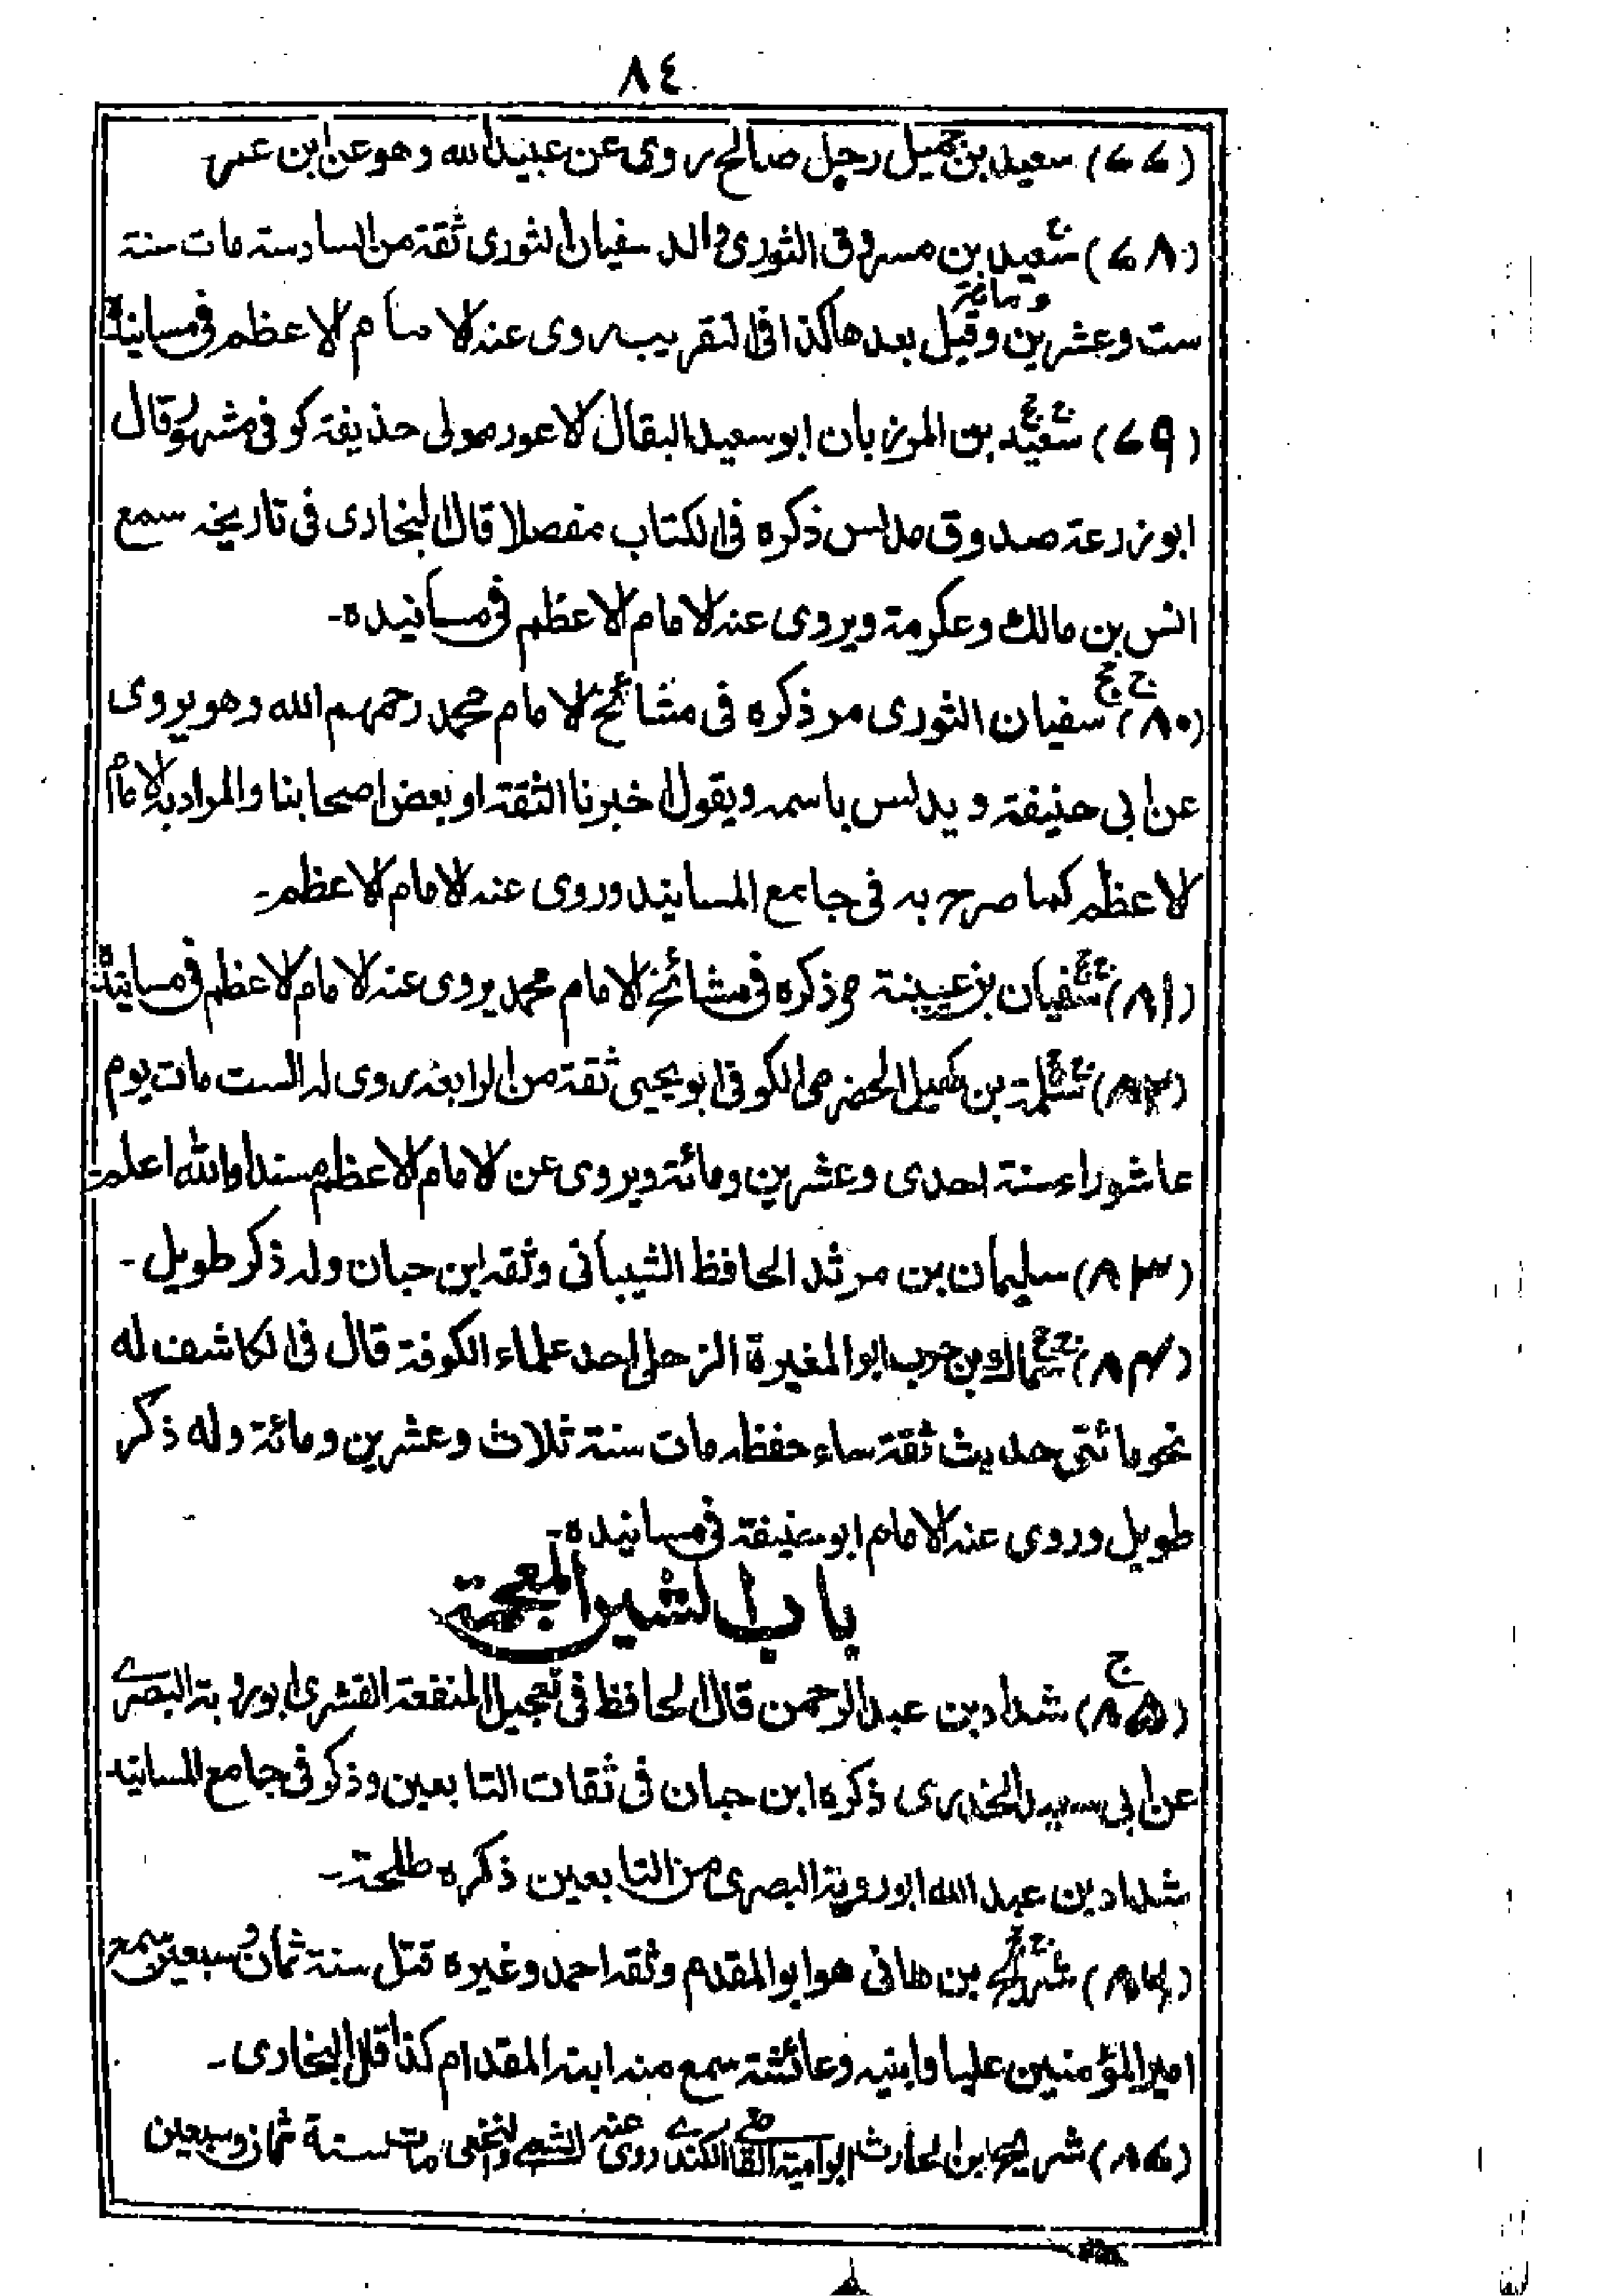 ٨٤
(٧٧) سعيد بن جميل رجل صالح روى عن عبيد الله وهو عن ابن عمر
(٧٨) سعيد بن مسروق الثورى والد سفيان الثورى ثقة من السادسة مات سنة
ست وعشرين ومائة وقيل بعدها كذا فى التقريب روى عنه الامام الاعظم فى مسانيده
(٧٩) سعيد بن المرزبان ابو سعيد البقال الاعور مولى حذيفة كوفى مشهور قال
ابو زرعة صدوق مدلس ذكره فى الكتاب مفصلا قال البخارى فى تاريخه سمع
انس بن مالك وعكرمة ويروى عنه الامام الاعظم فى مسانيده۔
(٨٠) سفيان الثورى مر ذكره فى مشائخ الامام محمد رحمهم الله وهو يروى
عن ابى حنيفة ويدلس باسمه ويقول اخبرنا الثقة او بعض اصحابنا والمراد به الامام
الاعظم كما صرح به فى جامع المسانيد وروى عنه الامام الاعظم۔
(٨١) سفيان بن عيينة مر ذكره فى مشائخ الامام محمد يروى عنه الامام الاعظم فى مسانيده
(٨٢) سلمة بن كهيل الحضرمى الكوفى ابو يحيى ثقة من الرابعة روى له الست مات يوم
عاشوراء سنة احدى وعشرين ومائة ويروى عن الامام الاعظم مسندا والله اعلم۔
(٨٣) سليمان بن مرثد الحافظ الشيبانى وثقه ابن حبان وله ذكر طويل۔
(٨٤) سماك بن حرب ابو المغيرة الزحلى احد علماء الكوفة قال فى الكاشف له
نحو مائتى حديث ثقة ساء حفظه مات سنة ثلاث وعشرين ومائة وله ذكر
طويل وروى عنه الامام ابو حنيفة فى مسانيده۔
باب الشين المعجمة
(٨٥) شداد بن عبد الرحمن قال الحافظ فى تعجيل المنفعة القشرى ابو روبة البصرى
عن ابى سعيد الخدرى ذكره ابن حبان فى ثقات التابعين وذكر فى جامع المسانيد
شداد بن عبد الله ابو روبة البصرى من التابعين ذكره طلحة۔
(٨٦) شريح بن هانى هو ابو المقدم وثقه احمد وغيره قتل سنة ثمان وسبعين سمع
امير المؤمنين عليا وابنيه وعائشة سمع منه ابنه المقدام كذا قال البخارى۔
(٨٧) شريح ابن الحارث ابو امية القاضى الكندى روى عنه الشعبى والنخعى مات سنة ثمان وسبعين